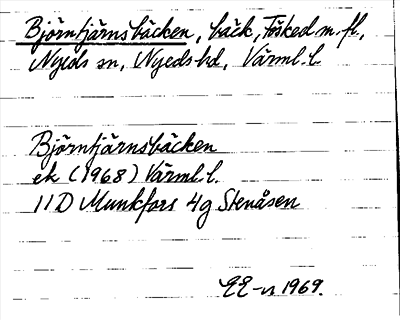 Björntjärnsbäcken, bäck, Tösked m. fl,
Nyeds sn, Nyeds hd, Värml. l.
Björntjärnsbäcken
ek (1968) Värml. l.
11D Munkfors 4g Stenåsen
1969.